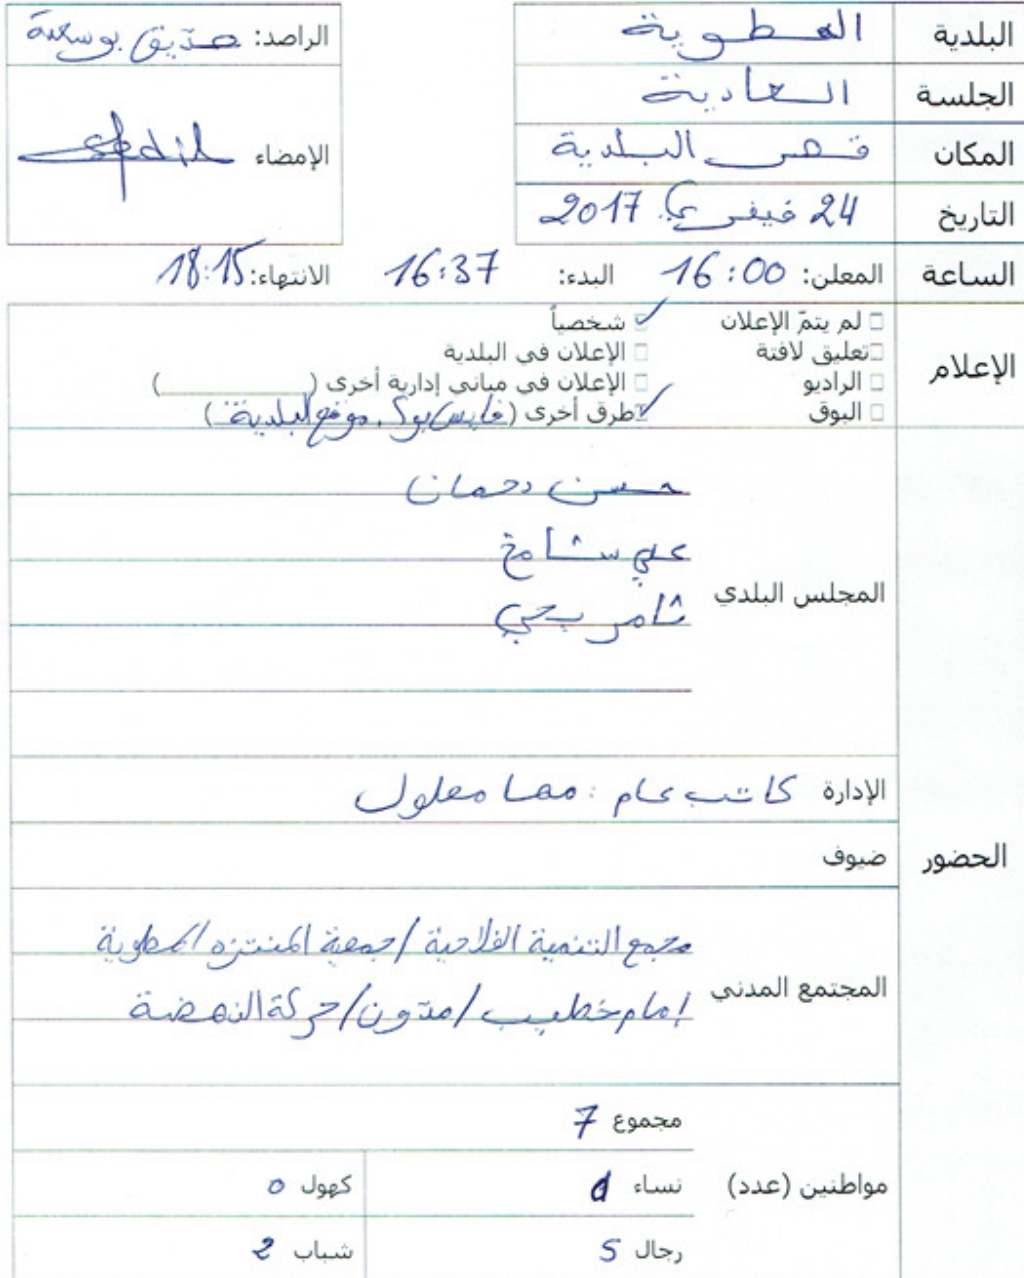 البلدية المطوية
الراصد: صديق بوسعدة
الجلسة العادية
الإمضاء
المكان قصر البلدية
التاريخ 24 فيفري 2017
الساعة المعلن: 16:00 البدء: 16:37 الانتهاء: 18:15
الإعلام
لم يتمّ الإعلان شخصياً
تعليق لافتة الإعلان في البلدية
الراديو الإعلان في مباني إدارية أخرى (__________)
البوق طرق أخرى (فايس بوك، موقع البلدية)
الحضور
المجلس البلدي
حسن دحمان
علي شامخ
ثامر يحي
الإدارة كاتب عام: مها معلول
ضيوف
المجتمع المدني
مجمع التنمية الفلاحية / جمعية المنتزه المطوية
إمام خطيب / مدون / حركة النهضة
مواطنين (عدد)
مجموع 7
نساء كهول 0
رجال 5 شباب 2